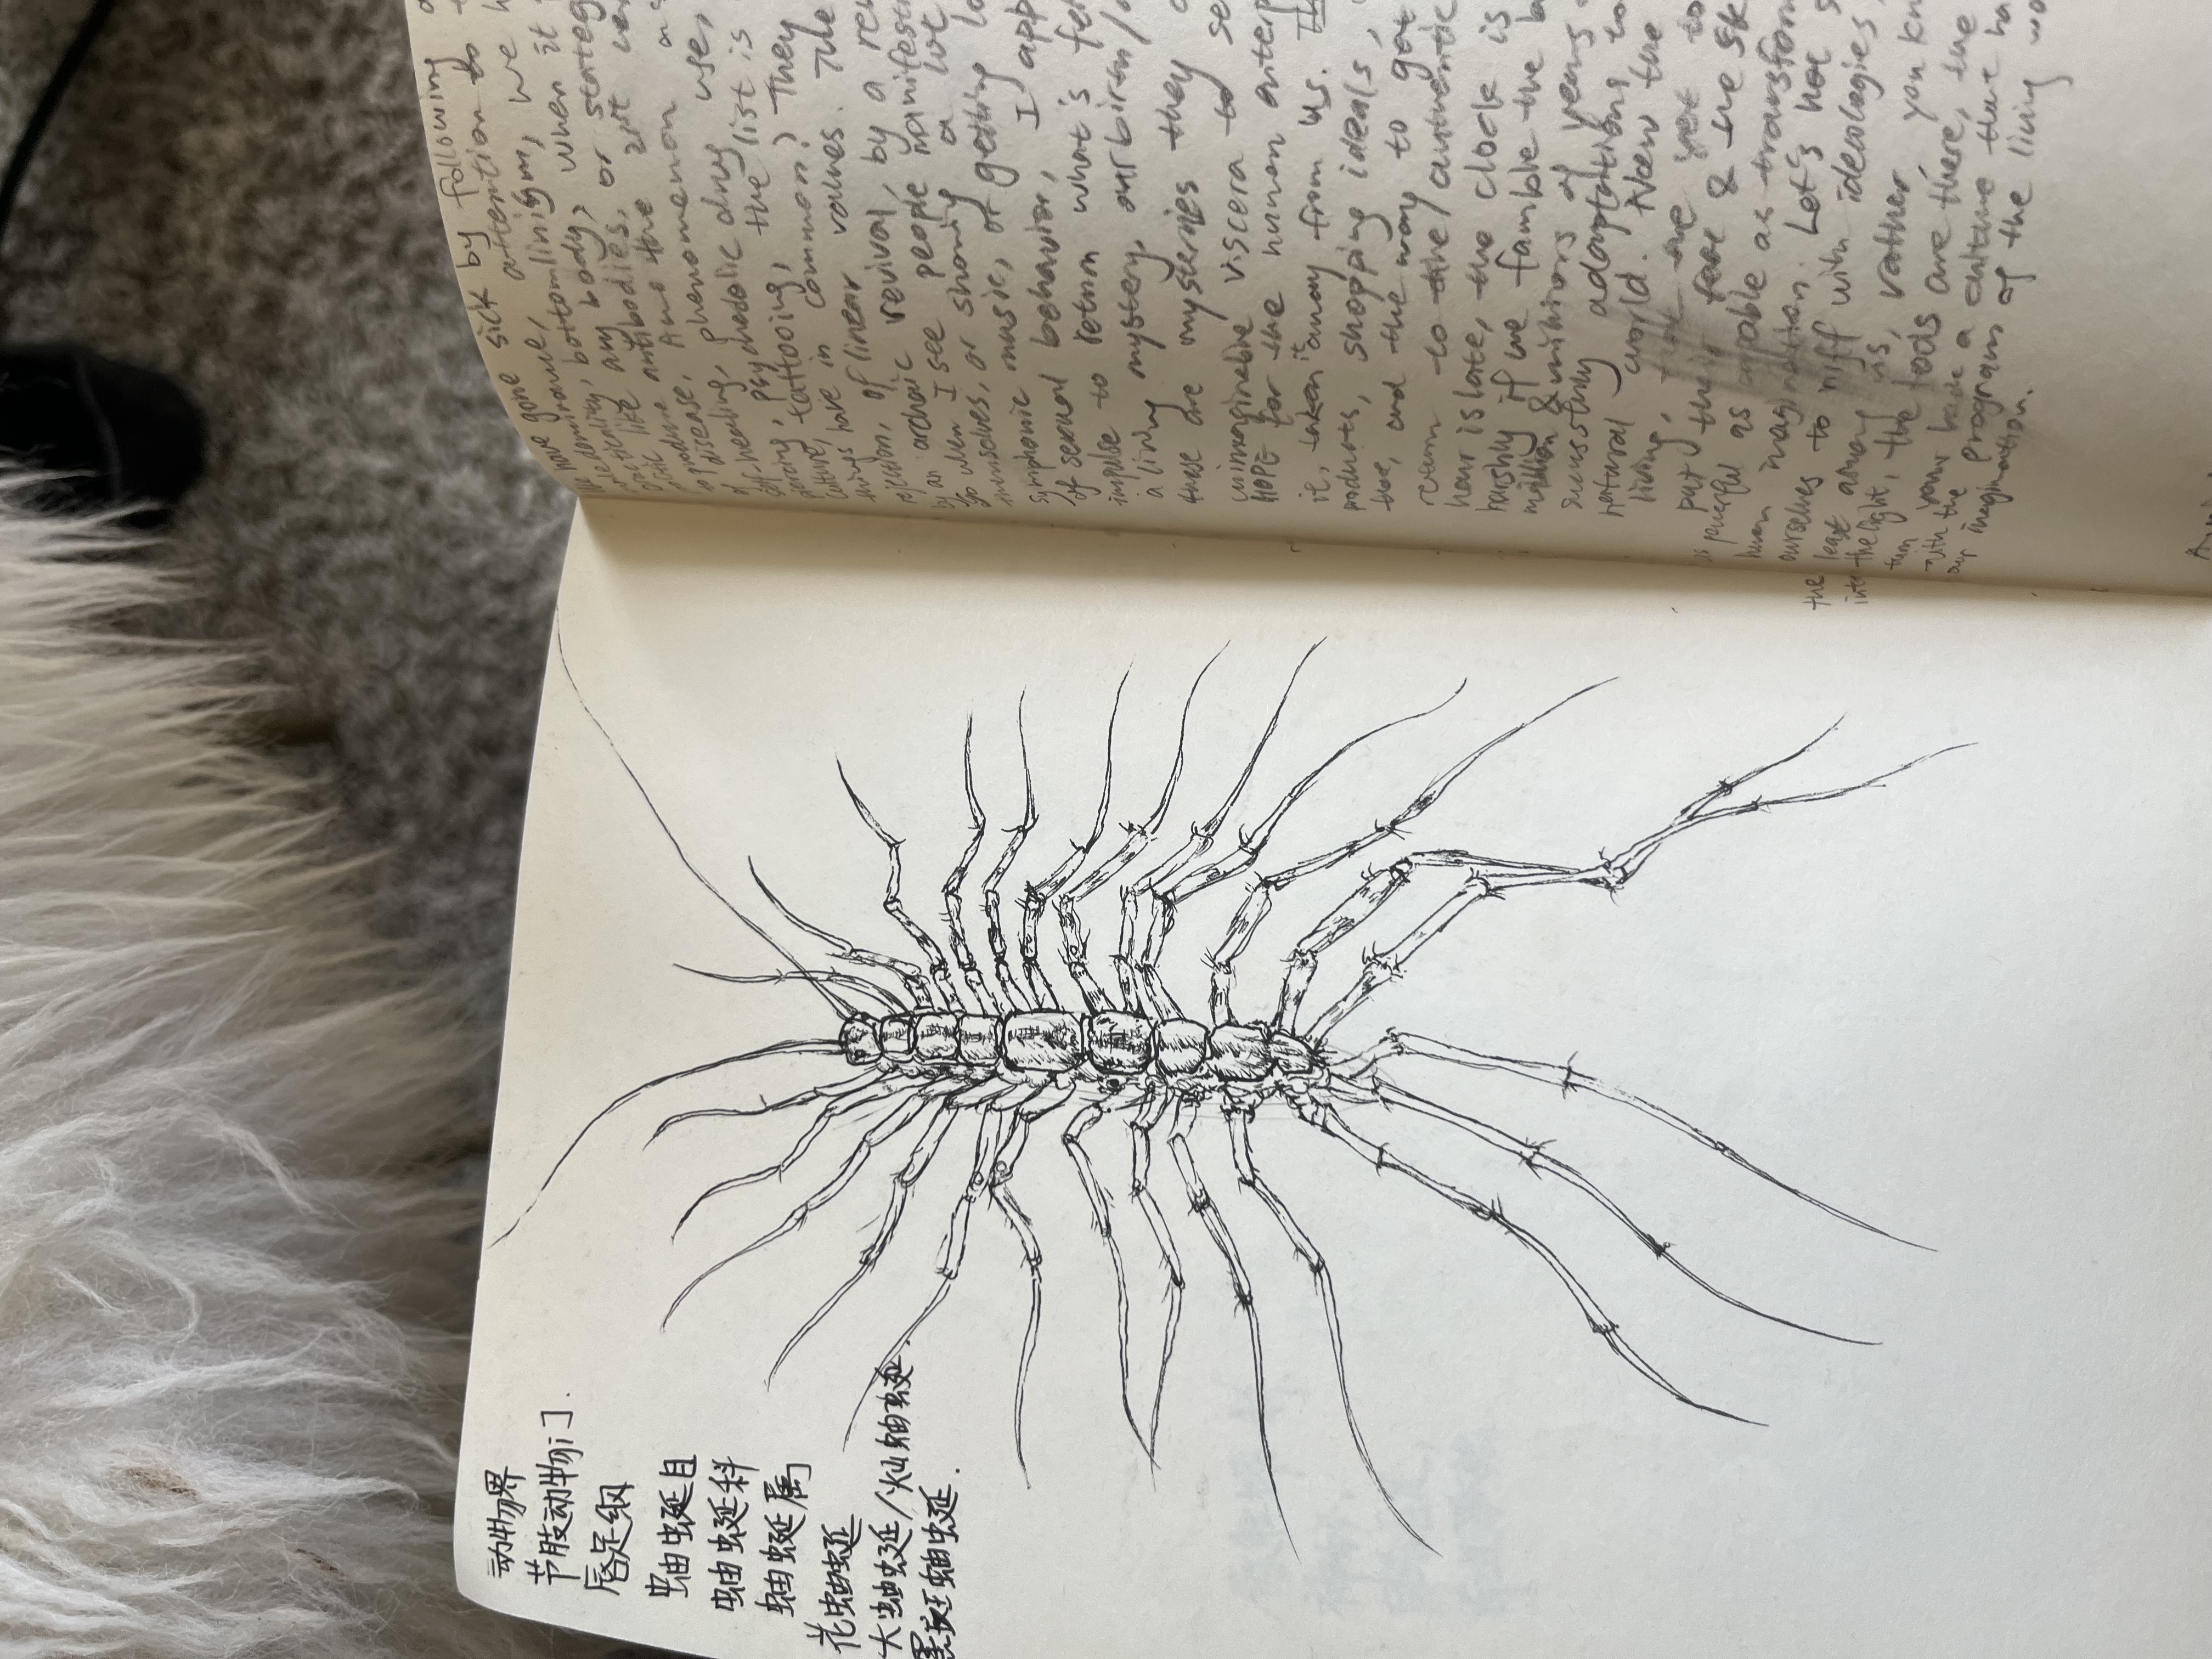 动物界
节肢动物门.
唇足纲
蚰蜒目
蚰蜒科
蚰蜒属
花蚰蜒
大蚰蜒/灿蚰蜒.
黑斑蚰蜒.
have gone sick by following
attention to
practicality, bottomlinism, we
like any body, when it
to produce antibodies, or strateg
of disease. And the 21st
self-healing, phenomenon
piercing, psychedelic drug use,
culture, tattooing, the list is
things have in common? They
rejection, of linear values. The
by an archaic revival, by a
So when I see people manifesti
themselves, or showing a lot
symphonic music, or getting
of sexual behavior, I app
impulse to return what's
a living mystery, our birth/
these are mysteries they
unimaginable viscera to
HOPE for the human enterp
it, taken it away from us.
products, shopping ideals,
that, and the way to get
return to the/ authentic
hour is late, the clock is
harshly if we famble the
million & millions of years
successfuly adaptations to
natural world. Now the
living, we yet to
put their & the
as powerful as capable as transform
human imagination. Let's not
the ourselves to riff with ideologies,
least among us, rather, you
into the light, the tools are there, the
turn your back a culture that ha
with the programs of the living
our imagination.